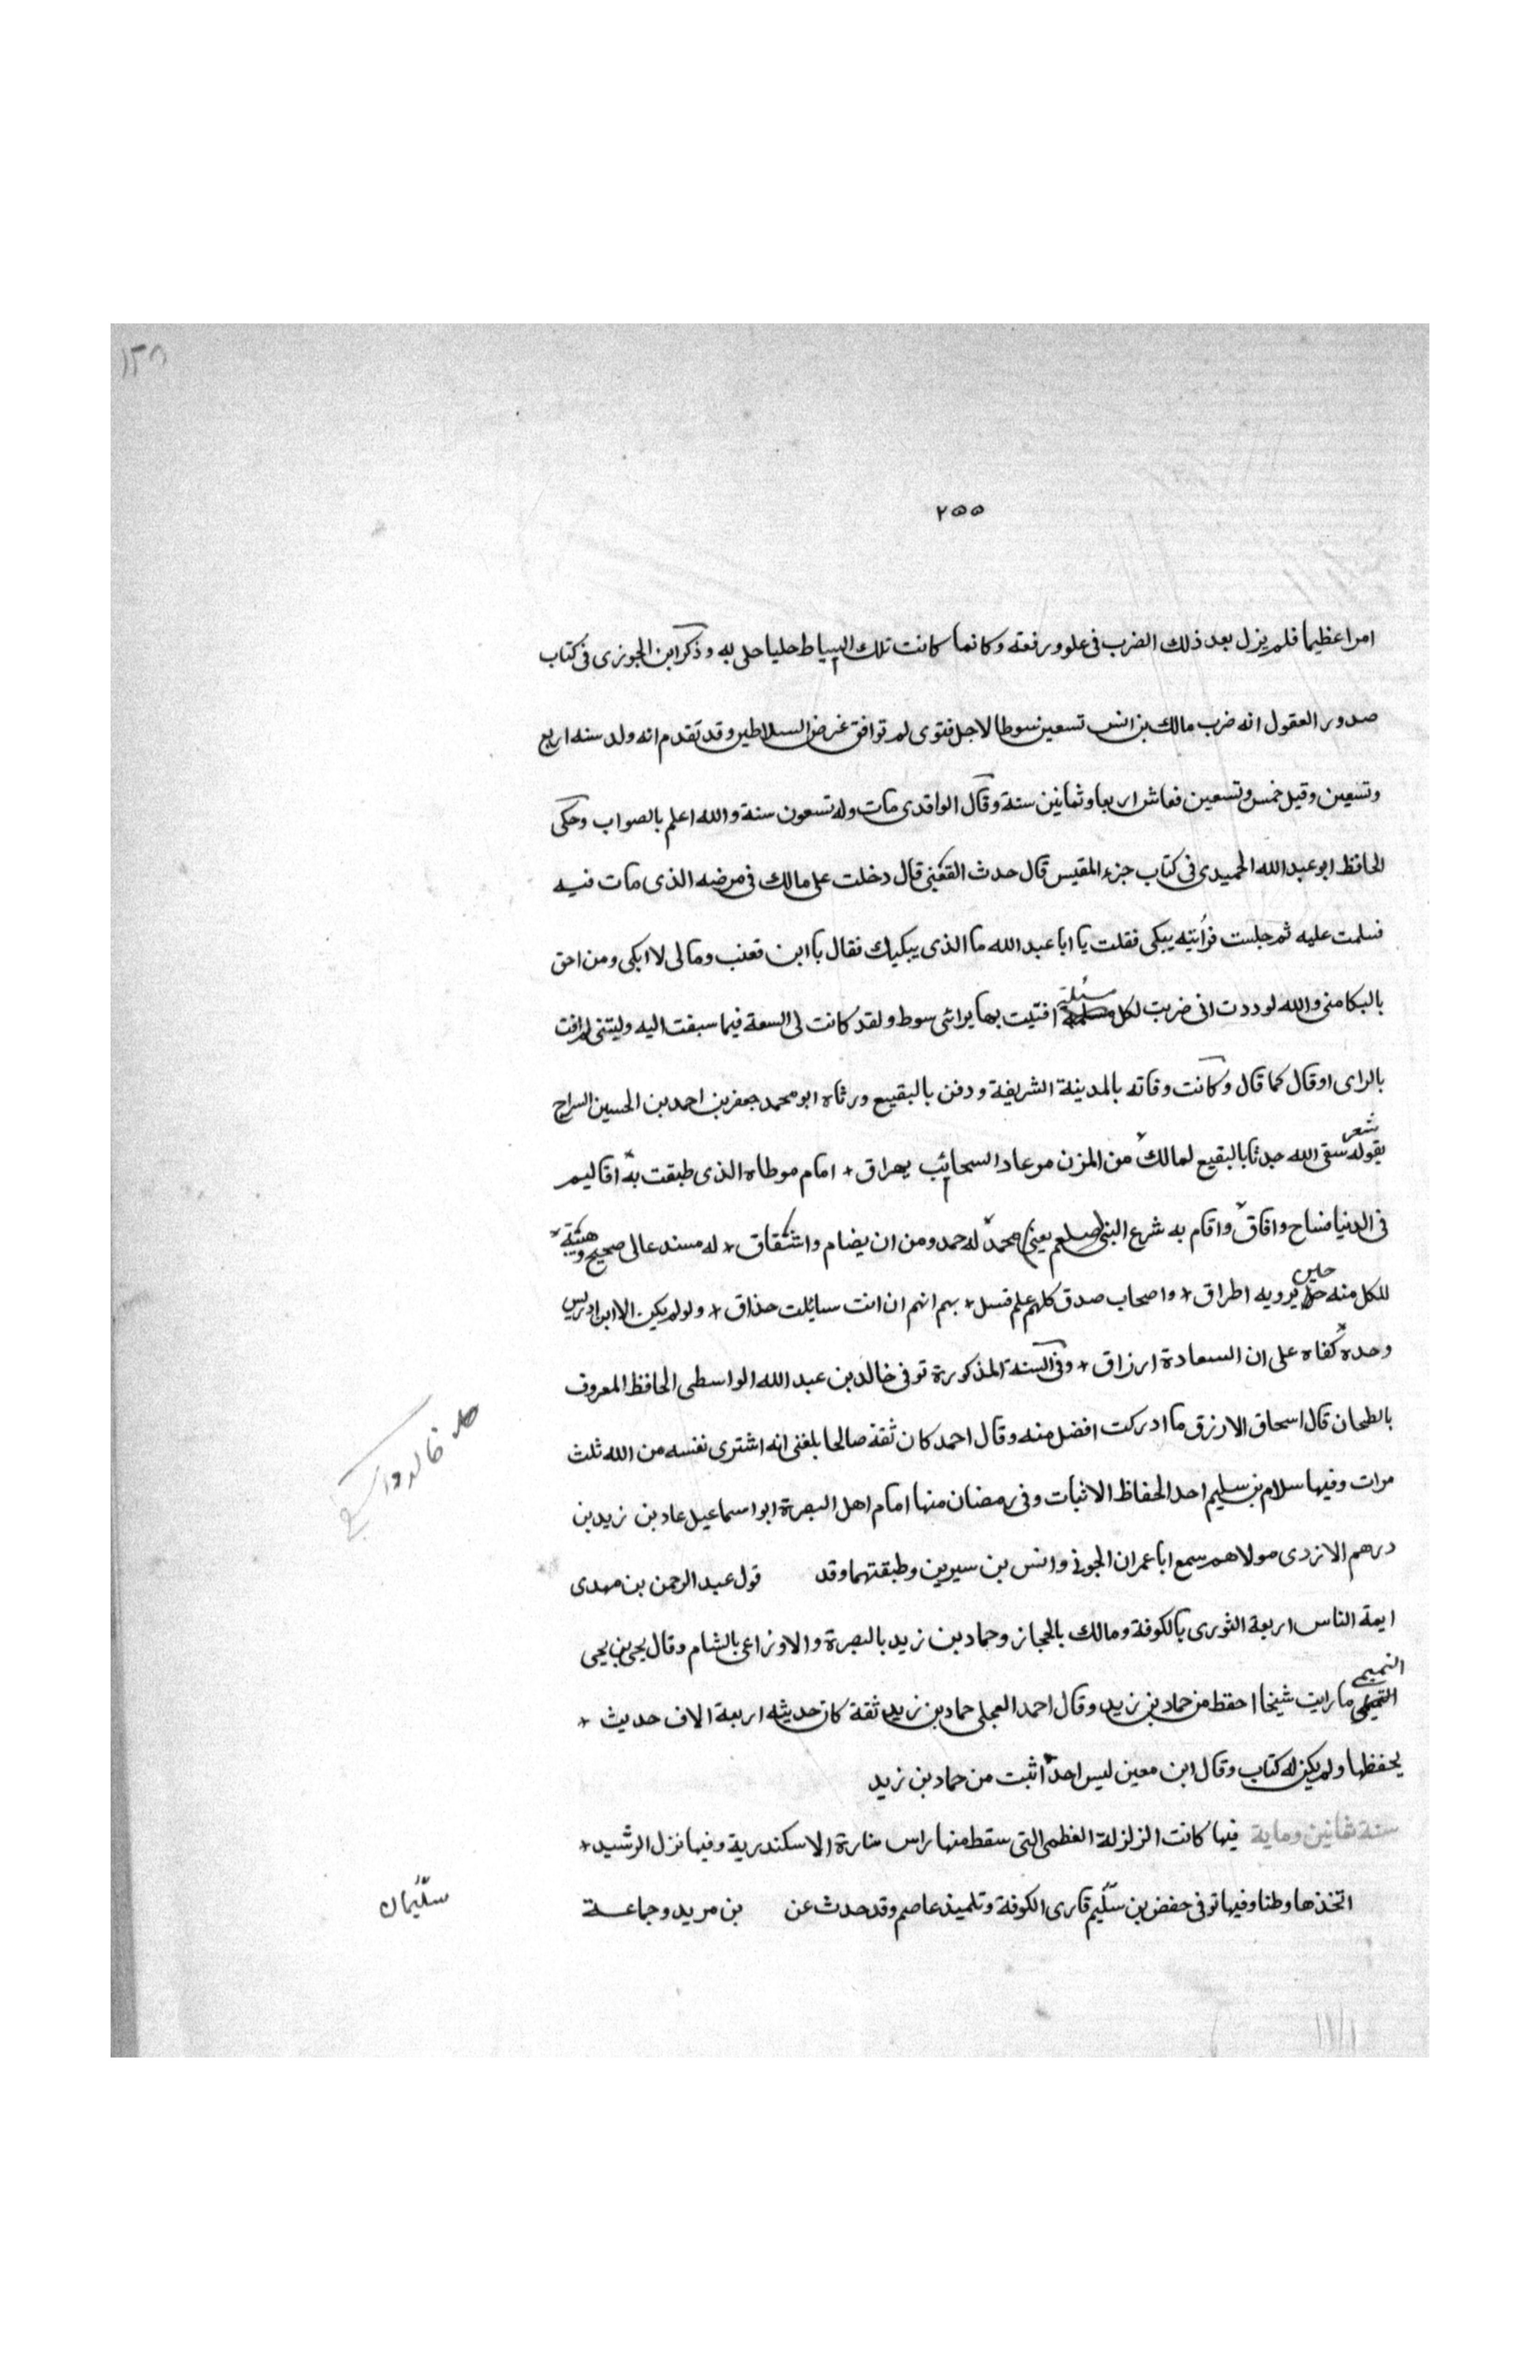 ١٣٨
٢٥٥
امرا عظيما فلم يزل بعد ذلك الضرب فى علو ورفعته وكانما كانت تلك السياط حليا حلى به وذكر ابن الجوزى فى كتاب
صدور العقول انه ضرب مالك بن انس تسعين سوطا لاجل فتوى لم توافق غرض السلاطين وقد تقدم انه ولد سنه اربع
وتسعين وقيل خمس وتسعين فعاش اربعا وثمانين سنة وقال الواقدى مات وله تسعون سنة والله اعلم بالصواب وحكى
الحافظ ابو عبد الله الحميدى فى كتاب جزء المقيس قال حدث القعنبى قال دخلت على مالك فى مرضه الذى مات فيه
فسلمت عليه ثم جلست فرأيته يبكى فقلت يا ابا عبد الله ما الذى يبكيك فقال يا ابن قعنب ومالى لا ابكى ومن احق
بالبكا منى والله لوددت انى ضربت لكل مسئلة افتيت بها برائى سوط ولقد كانت لى السعة فيما سبقت اليه وليتنى لم افت
بالراى او قال كما قال وكانت وفاته بالمدينة الشريفة ودفن بالبقيع ورثاه ابو محمد جعفر بن احمد بن الحسين السراج
شعر
بقوله سقى الله جدثا بالبقيع لمالك من المزن مرعاد السحائب يهراق + امام موطاه الذى طبقت به اقاليم
فى الدنيا فساح وافاق واقام به شرع النبى (صلعم يعنى) محمد له حمد ومن ان يضام واشقاق + له مسند عالى صحيح وهيبة
للكل منه حين يرويه اطراق + واصحاب صدق كلهم علم فسل + بهم انهم ان انت سائلت حذاق + ولو لم يكن الا ابن ادريس
وحده كفاه على ان السعادة ارزاق + وفى السنة المذكورة توفى خالد بن عبد الله الواسطى الحافظ المعروف
بالطحان قال اسحاق الازرق ما ادركت افضل منه وقال احمد كان ثقة صالحا بلغنى انه اشترى نفسه من الله ثلث
مرات وفيها سلام بن سليم احد الحفاظ الاثبات وفى رمضان منها امام اهل البصرة ابو اسماعيل عاد بن زيد بن
درهم الازدى مولاهم سمع ابا عمران الجونى وانس بن سيرين وطبقتهما وقد قول عبد الرحمن بن مهدى
ايمة الناس اربعة الثورى بالكوفة ومالك بالحجاز وحماد بن زيد بالبصرة والاوزاعى بالشام وقال يحيى بن يحيى
التميمى ما رايت شيخا احفظ من حماد بن زيد وقال احمد العجلى حماد بن زيد ثقة كان حديثه اربعة الاف حديث +
يحفظها ولم يكن له كتاب وقال ابن معين ليس احد اثبت من حماد بن زيد
سنة ثمانين وماية فيها كانت الزلزلة العظمى التى سقط منها راس منارة الاسكندرية وفيها نزل الرشيد +
اتخذها وطنا وفيها توفى حفض بن سليم قارى الكوفة وتلميذ عاصم وقد حدث عن بن مريد وجماعة
سليمان